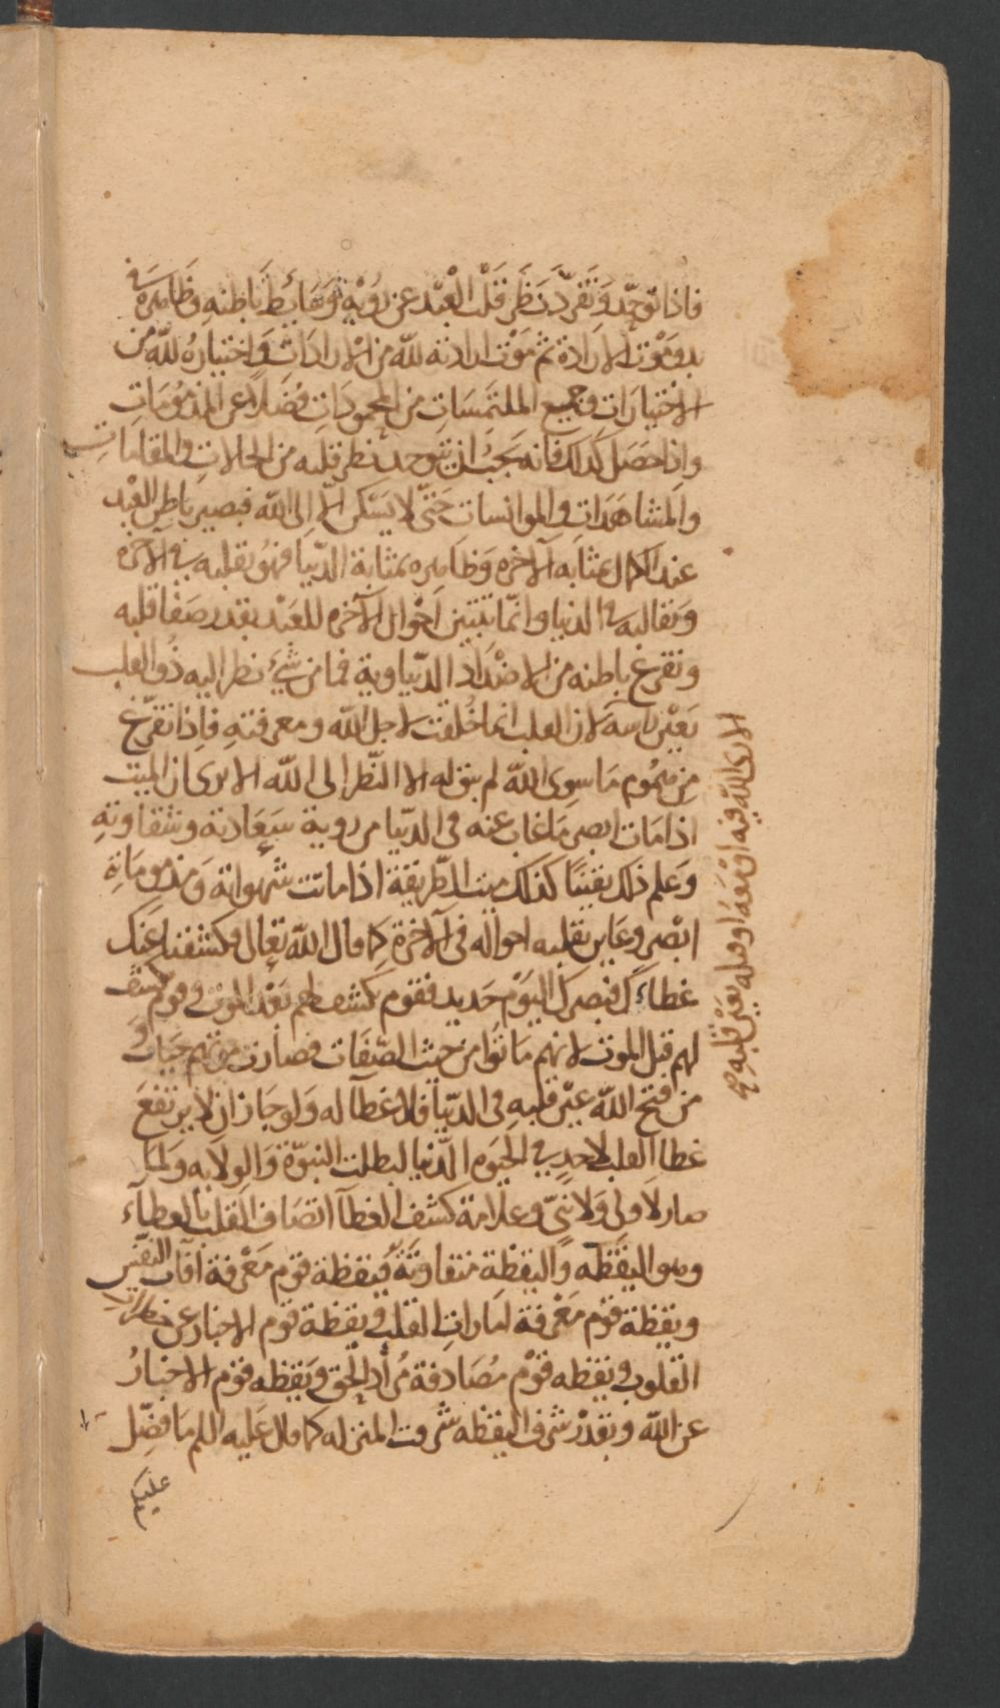 فاذا توحّد وتفرّد نظر قلب العبد عن رؤية وسَائط باطنه وظاهره في
بدو موت الارادة ثم موت ارادته لله من الارادات واختياره لله من
الاختيارات وجميع الملتمسات من المحمودات فضلا عن المذمومات
واذا حصل كذلك فانه يجب ان يتوحد نظر قلبه من الحالات والمقامات
والمشاهدات والموانسات حتّى لا يسكن الا الى الله فيصير باطن العبد
عند الكمال بمثابه الاخره وظاهره بمثابة الدّنيا فهو بقلبه في الاخره
وبقالبه في الدنيا وانّما تتبين احوال الآخره للعبد بقدر صفا قلبه
وتفرغ باطنه من الاضداد الدّنياوية فما من شيء نظر اليه ذو القلب
بعين راسه لان القلب انما خلقت لاجل الله ومعرفته فاذا تفرّغ
من هموم ما سوى الله لم يبق له الا النّظر الى الله الا يرى ان الميت
اذا مات ابصر ما غاب عنه في الدّنيا من روية سعادته وشقاوته
وعلم ذلك يقينًا كذلك ميت الطّريقة اذا ماتت شهواته ومذموماته
ابصر وعاين بقلبه احواله في الآخرة كما قال الله تعالى فكشفنا عنك
غطاءك فبصرك اليوم حديد فقوم كشف لهم بعد الموت وقوم كشف
لهم قبل الموت لانهم ماتوا من حيث الصّفات فصارت موتهم حيات و
من فتح الله عين قلبه في الدّنيا فلا غطآ له ولو جاز ان لا يرتفع
غطا القلب لاحد في الحيوه الدّنيا لبطلت النبوّة والولايه ولما
صار لا ولى ولا نبىّ وعلامة كشف الغطآ اتصاف القلب بالعطآء
وهو اليقظه واليقظة متفاوتة فيقظة قوم معرفة آفات النفس
ويقظة قوم معرفة امارات القلب ويقظة قوم الاخبار عن خطرات
القلوب ويقظه قوم مصادفة مراد الحق ويقظه قوم الاخبار
عن الله وبقدر شرف اليقظه شرفت المنزله كما قال عليه اللم ما فضّل
عليكم
الا رى الله فيه او معه او قبله بعين قلبه صح